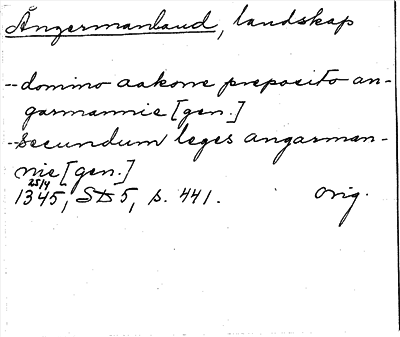 Ångermanland, landskap
-- domino aakone preposito an-
garmannie [gen.]
-- secundum leges angarman-
nie [gen.]
25/4
1345, SD 5, s. 441. Orig.